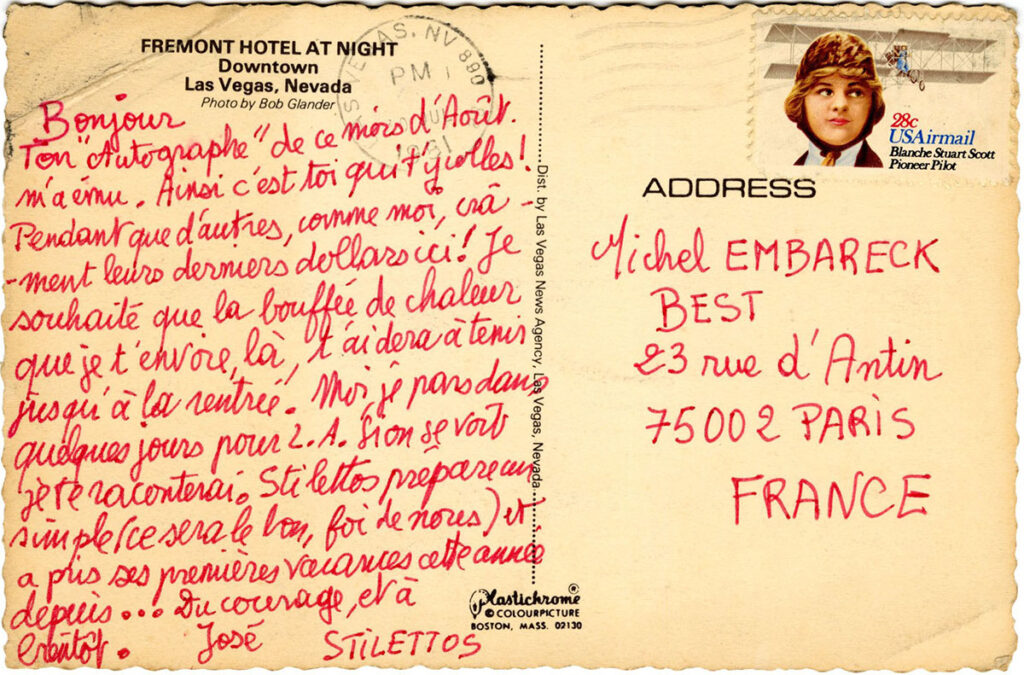 FREMONT HOTEL AT NIGHT
Downtown
Las Vegas, Nevada
Photo by Bob Glander
LAS VEGAS, NV 890
PM
1981
28c
USAirmail
Blanche Stuart Scott
Pioneer Pilot
Bonjour
Ton "Autographe" de ce mois d'Août.
m'a ému. Ainsi c'est toi qui t'y colles!
Pendant que d'autres, comme moi, crâ-
-ment leurs derniers dollars ici! Je
souhaite que la bouffée de chaleur
que je t'envoie, là, t'aidera à tenir
jusqu'à la rentrée. Moi je pars dans
quelques jours pour L.A. Si on se voit
je te raconterai. Stilettos prépare un
simple (ce sera le bon, foi de nous) et
a pris ses premières vacances cette année
depuis... Du courage, et à
bientôt. José STILETTOS
Dist. by Las Vegas News Agency, Las Vegas, Nevada
Plastichrome®
© COLOURPICTURE
BOSTON, MASS. 02130
ADDRESS
Michel EMBARECK
BEST
23 rue d'Antin
75002 PARIS
FRANCE